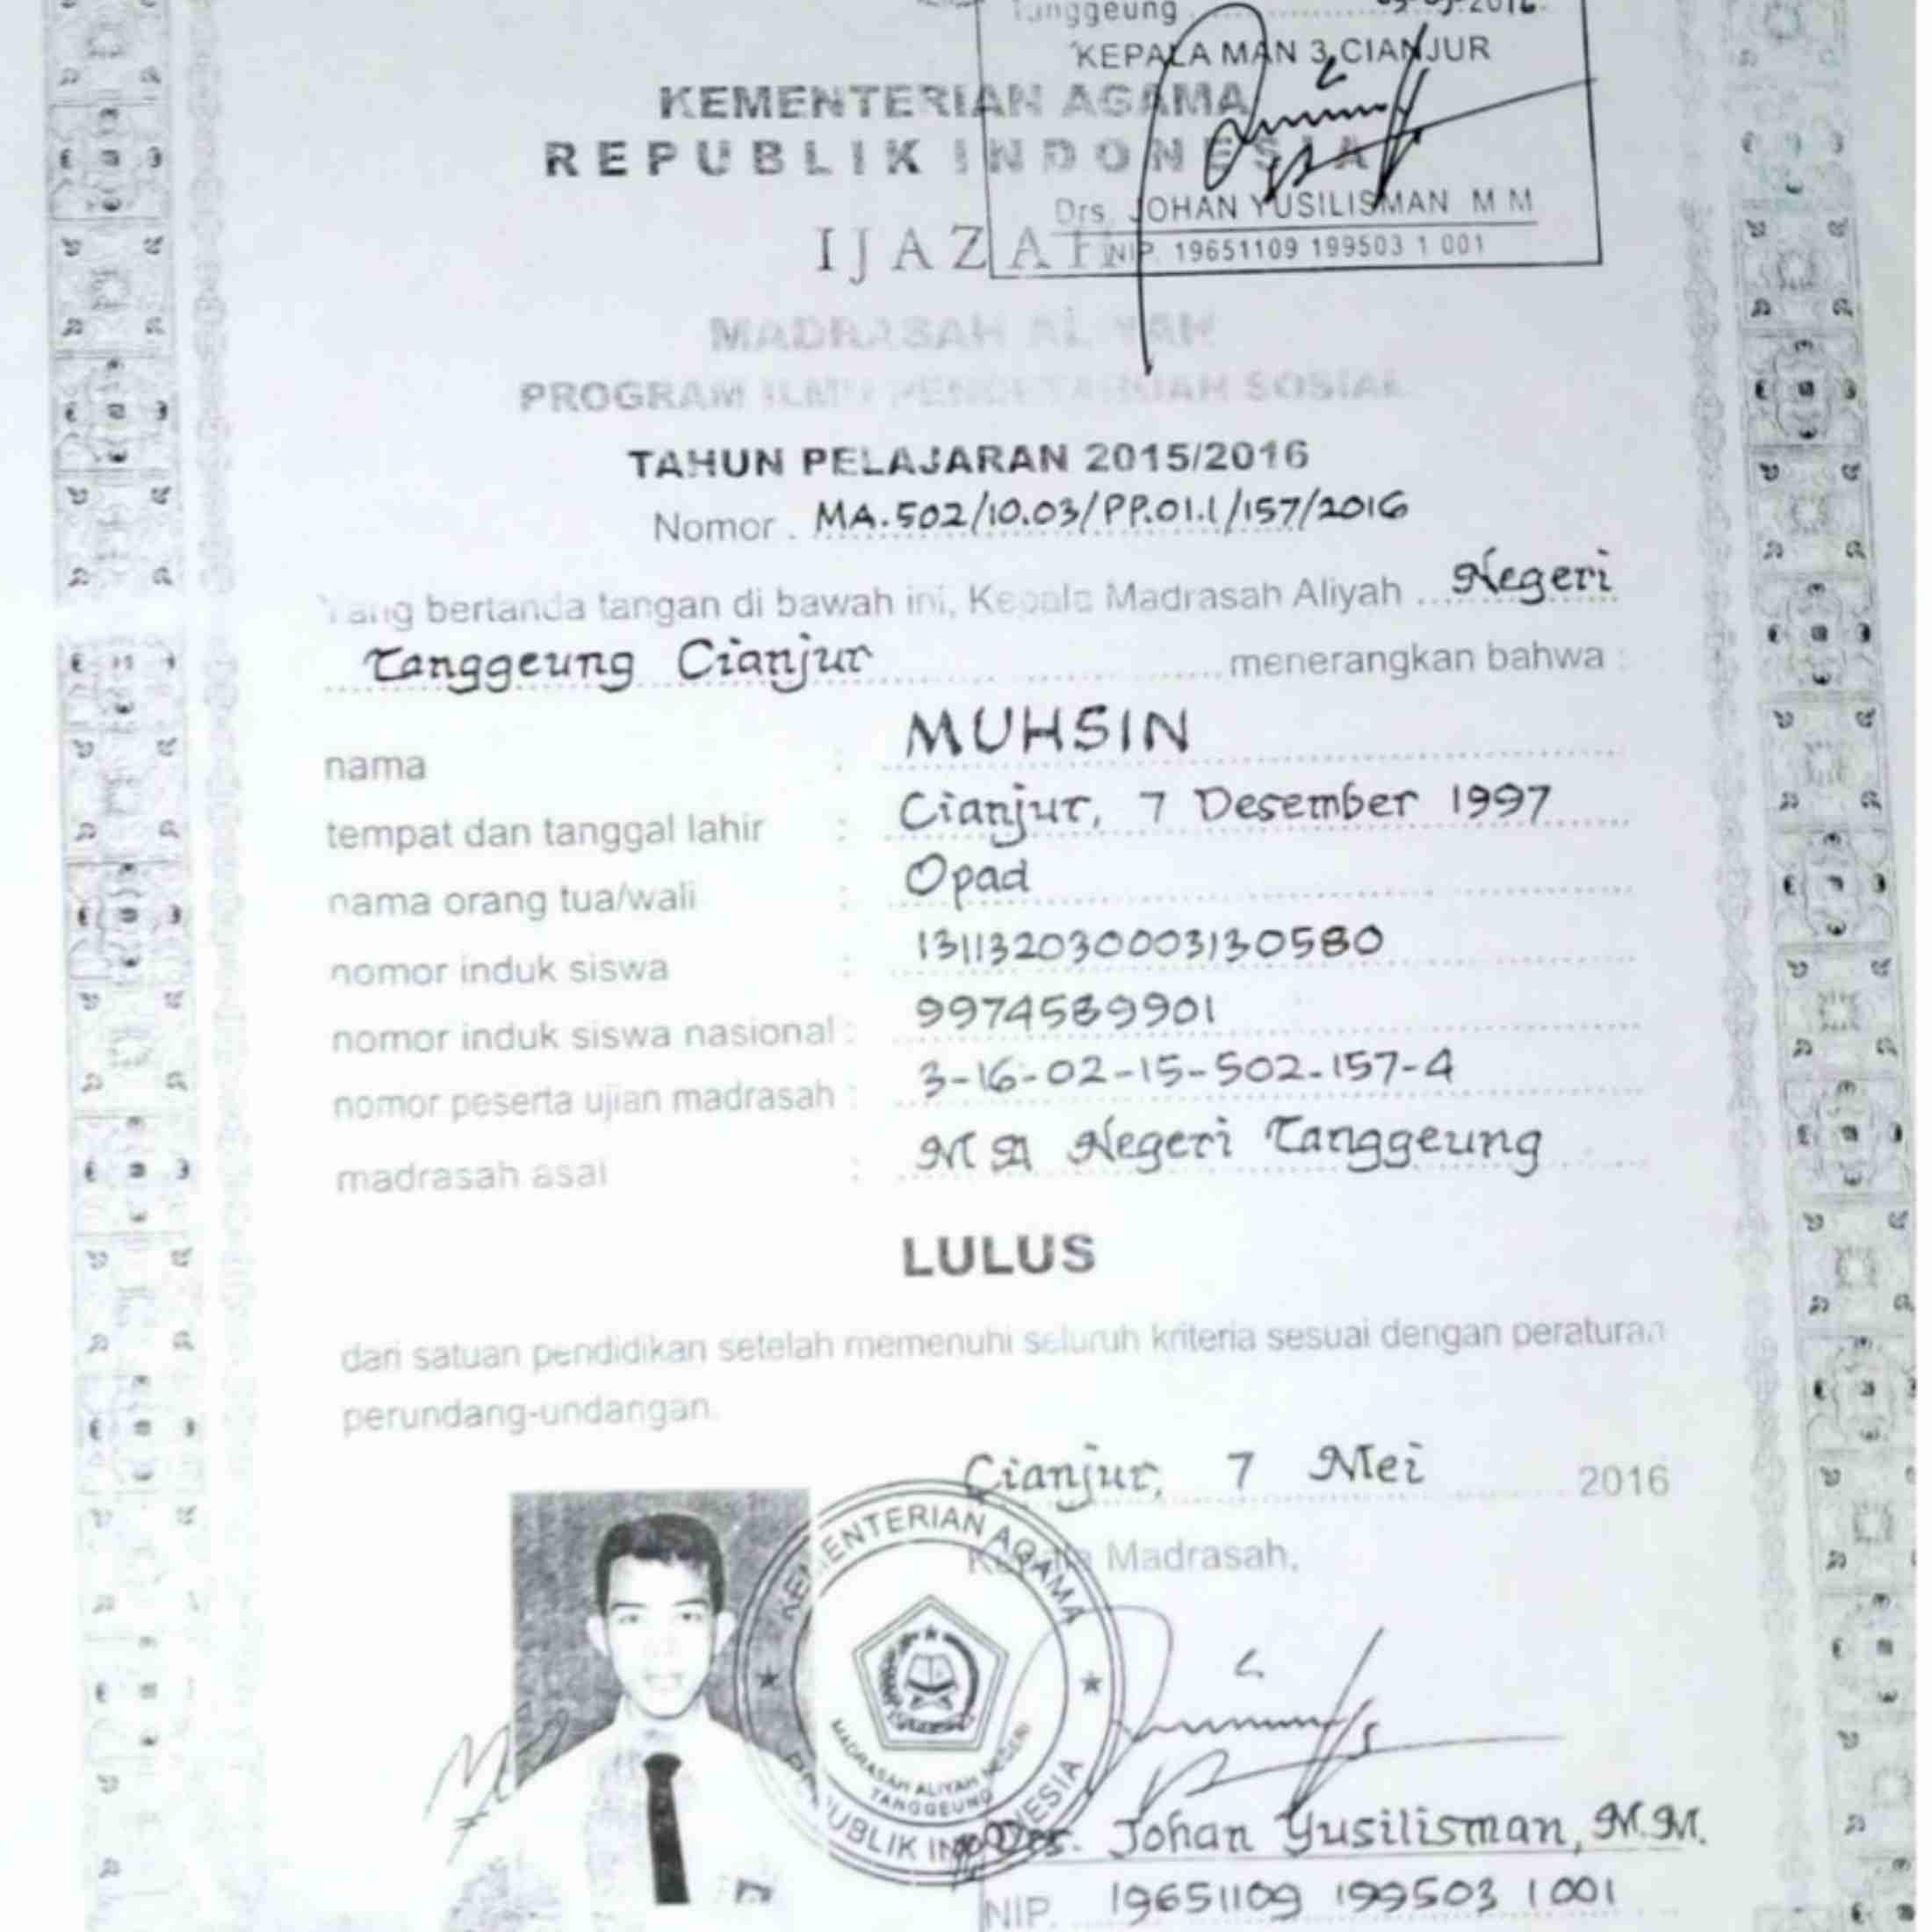 Tanggeung 2016
KEPALA MAN 3 CIANJUR
KEMENTERIAN AGAMA
REPUBLIK INDONESIA
Drs. JOHAN YUSILISMAN M M
NIP. 19651109 199503 1 001
IJAZAH
MADRASAH ALIYAH
PROGRAM ILMU PENGETAHUAN SOSIAL
TAHUN PELAJARAN 2015/2016
Nomor . MA.502/10.03/PP.01.1/157/2016
Yang bertanda tangan di bawah ini, Kepala Madrasah Aliyah Negeri
Tanggeung Cianjur menerangkan bahwa :
nama : MUHSIN
tempat dan tanggal lahir : Cianjur, 7 Desember 1997
nama orang tua/wali : Opad
nomor induk siswa : 131132030003130580
nomor induk siswa nasional : 9974589901
nomor peserta ujian madrasah : 3-16-02-15-502-157-4
madrasah asal : MA Negeri Tanggeung
LULUS
dari satuan pendidikan setelah memenuhi seluruh kriteria sesuai dengan peraturan
perundang-undangan.
Cianjur, 7 Mei 2016
Kepala Madrasah,
KEMENTERIAN AGAMA
MADRASAH ALIYAH NEGERI
TANGGEUNG
REPUBLIK INDONESIA
Drs. Johan Yusilisman, M.M.
NIP. 19651109 199503 1 001